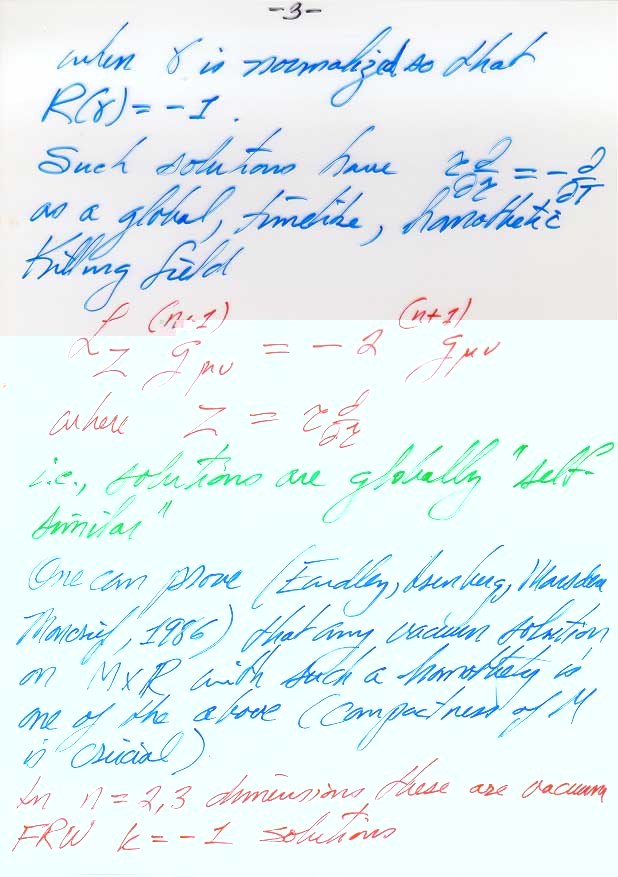 -3-
when γ is normalized so that
R(γ) = -1.
Such solutions have τ ∂/∂τ = - ∂/∂T
as a global, timelike, homothetic
Killing field
L_Z ^(n+1)g_μν = -2 ^(n+1)g_μν
where Z = τ ∂/∂τ
i.e., solutions are globally "self-
similar"
One can prove (Eardley, Isenberg, Marsden
Moncrief, 1986) that any vacuum solution
on M×R with such a homothety is
one of the above (compactness of M
is crucial)
In n = 2,3 dimensions these are vacuum
FRW k = -1 solutions